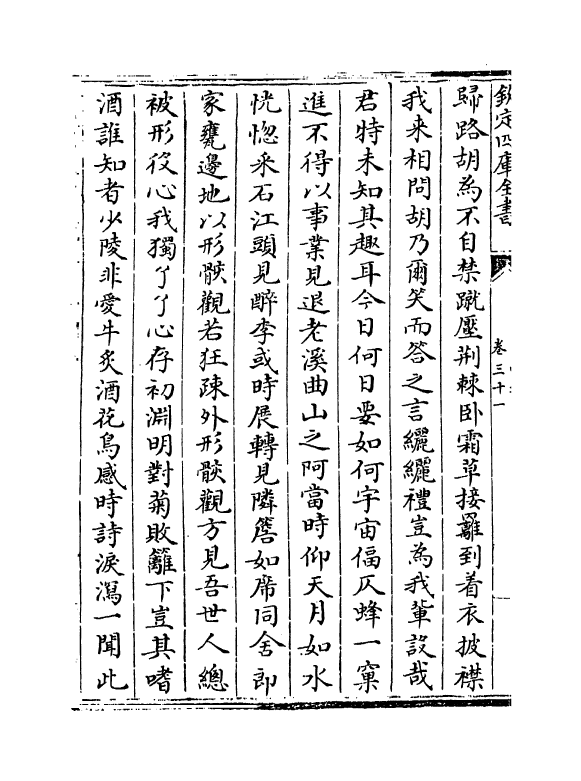 欽定四庫全書
卷三十一
歸路胡為不自禁蹴壓荆棘卧霜草接䍦到着衣披襟
我来相問胡乃爾笑而答之言纚纚禮豈為我軰設哉
君特未知其趣耳今日何日要如何宇宙偪仄蜂一窠
進不得以事業見退老溪曲山之阿當時仰天月如水
恍惚采石江頭見醉李或時展轉見隣簷如席同舍即
家甕邊地以形骸觀若狂疎外形骸觀方見吾世人總
被形役心我獨了了心存初淵明對菊敗籬下豈其嗜
酒誰知者少陵非愛牛炙酒花鳥感時詩淚瀉一聞此